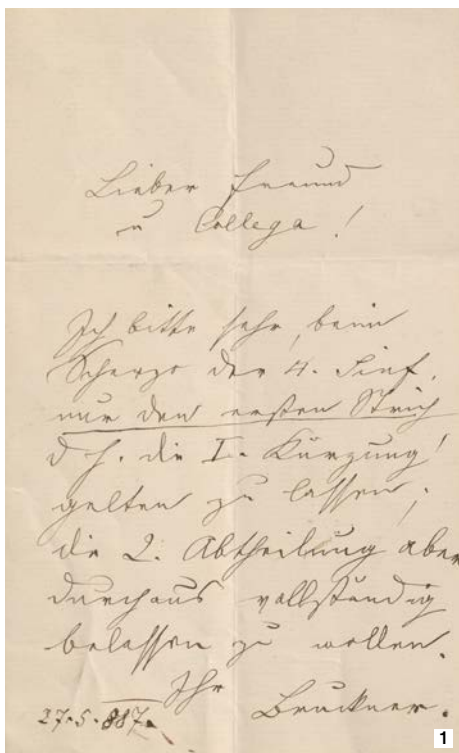 Lieber Freund
u Collega!
Ich bitte sehr, beim
Scherzo der 4. Sinf.
nur den ersten Strich
d h. die I. Kürzung!
gelten zu lassen;
die 2. Abtheilung aber
durchaus vollständig
belassen zu wollen.
Ihr
27.5.887. Bruckner.
1